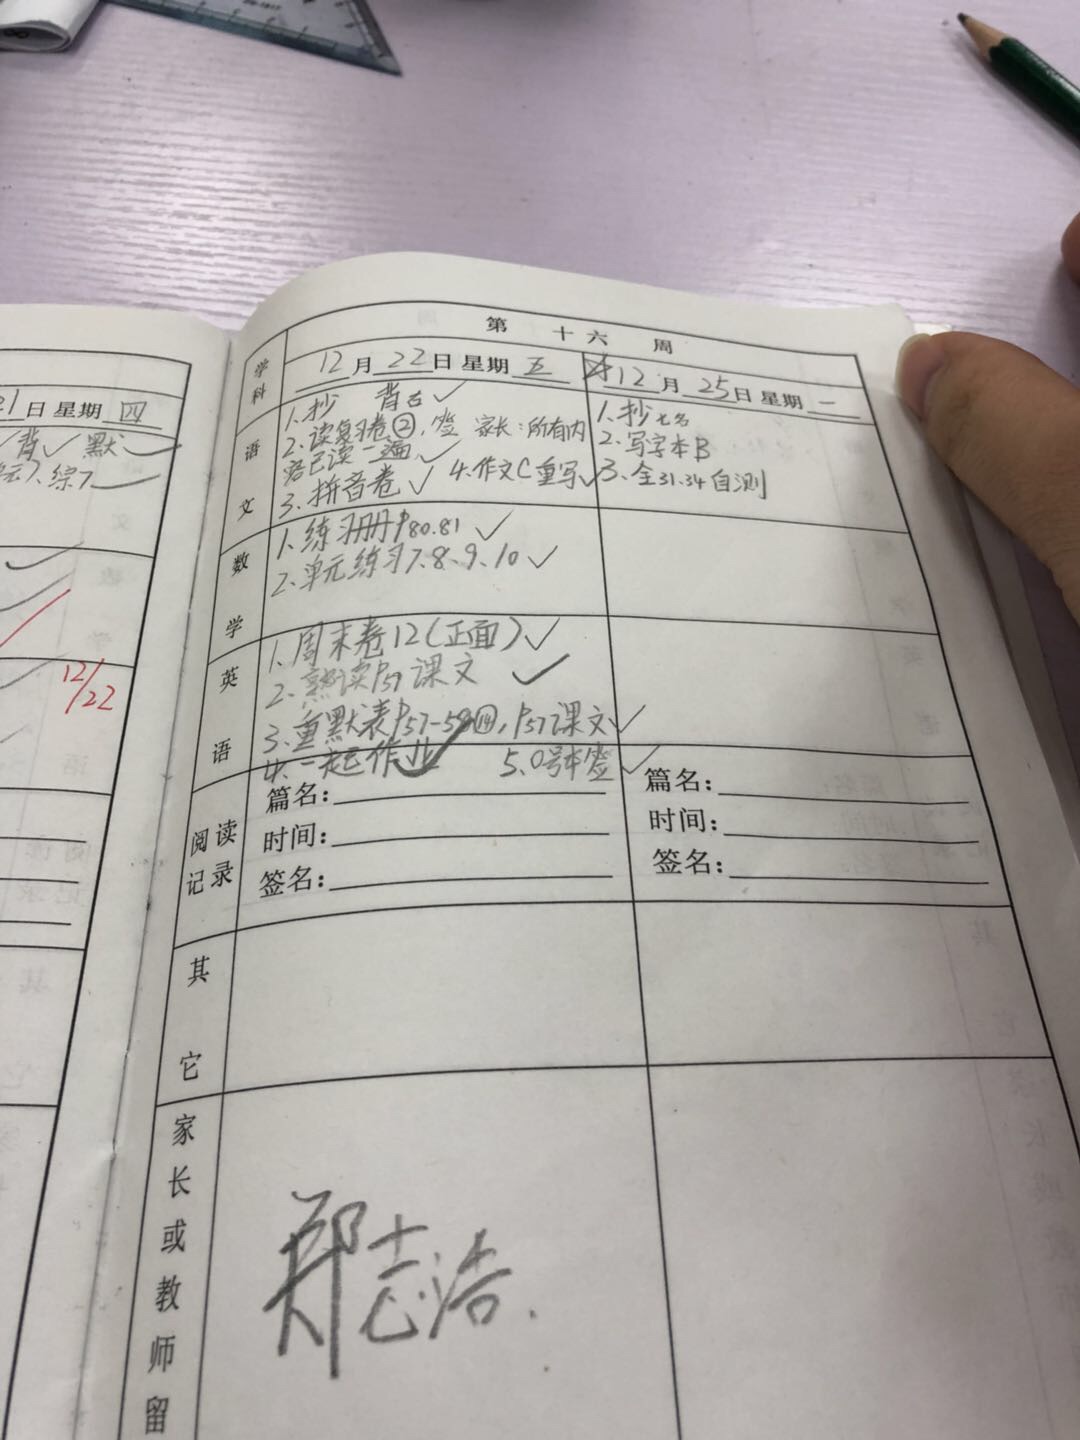 第十六周
学科
12月22日星期五
12月25日星期一
21日星期四
背 默
综7
12/22
语文
1、抄 背右
2、读复习卷②,签 家长:所有内
容已读一遍
3、拼音卷 4、作文C重写
1、抄
2、写字本B
3、全31.34自测
数学
1、练习册P80.81
2、单元练习7、8、9、10
英语
1、周末卷12(正面)
2、熟读P57课文
3、重默表P57-58⑭,P57课文
4、一起作业 5、0号本签
阅读记录
篇名:
时间:
签名:
篇名:
时间:
签名:
其它
家长或教师留
郑志浩.